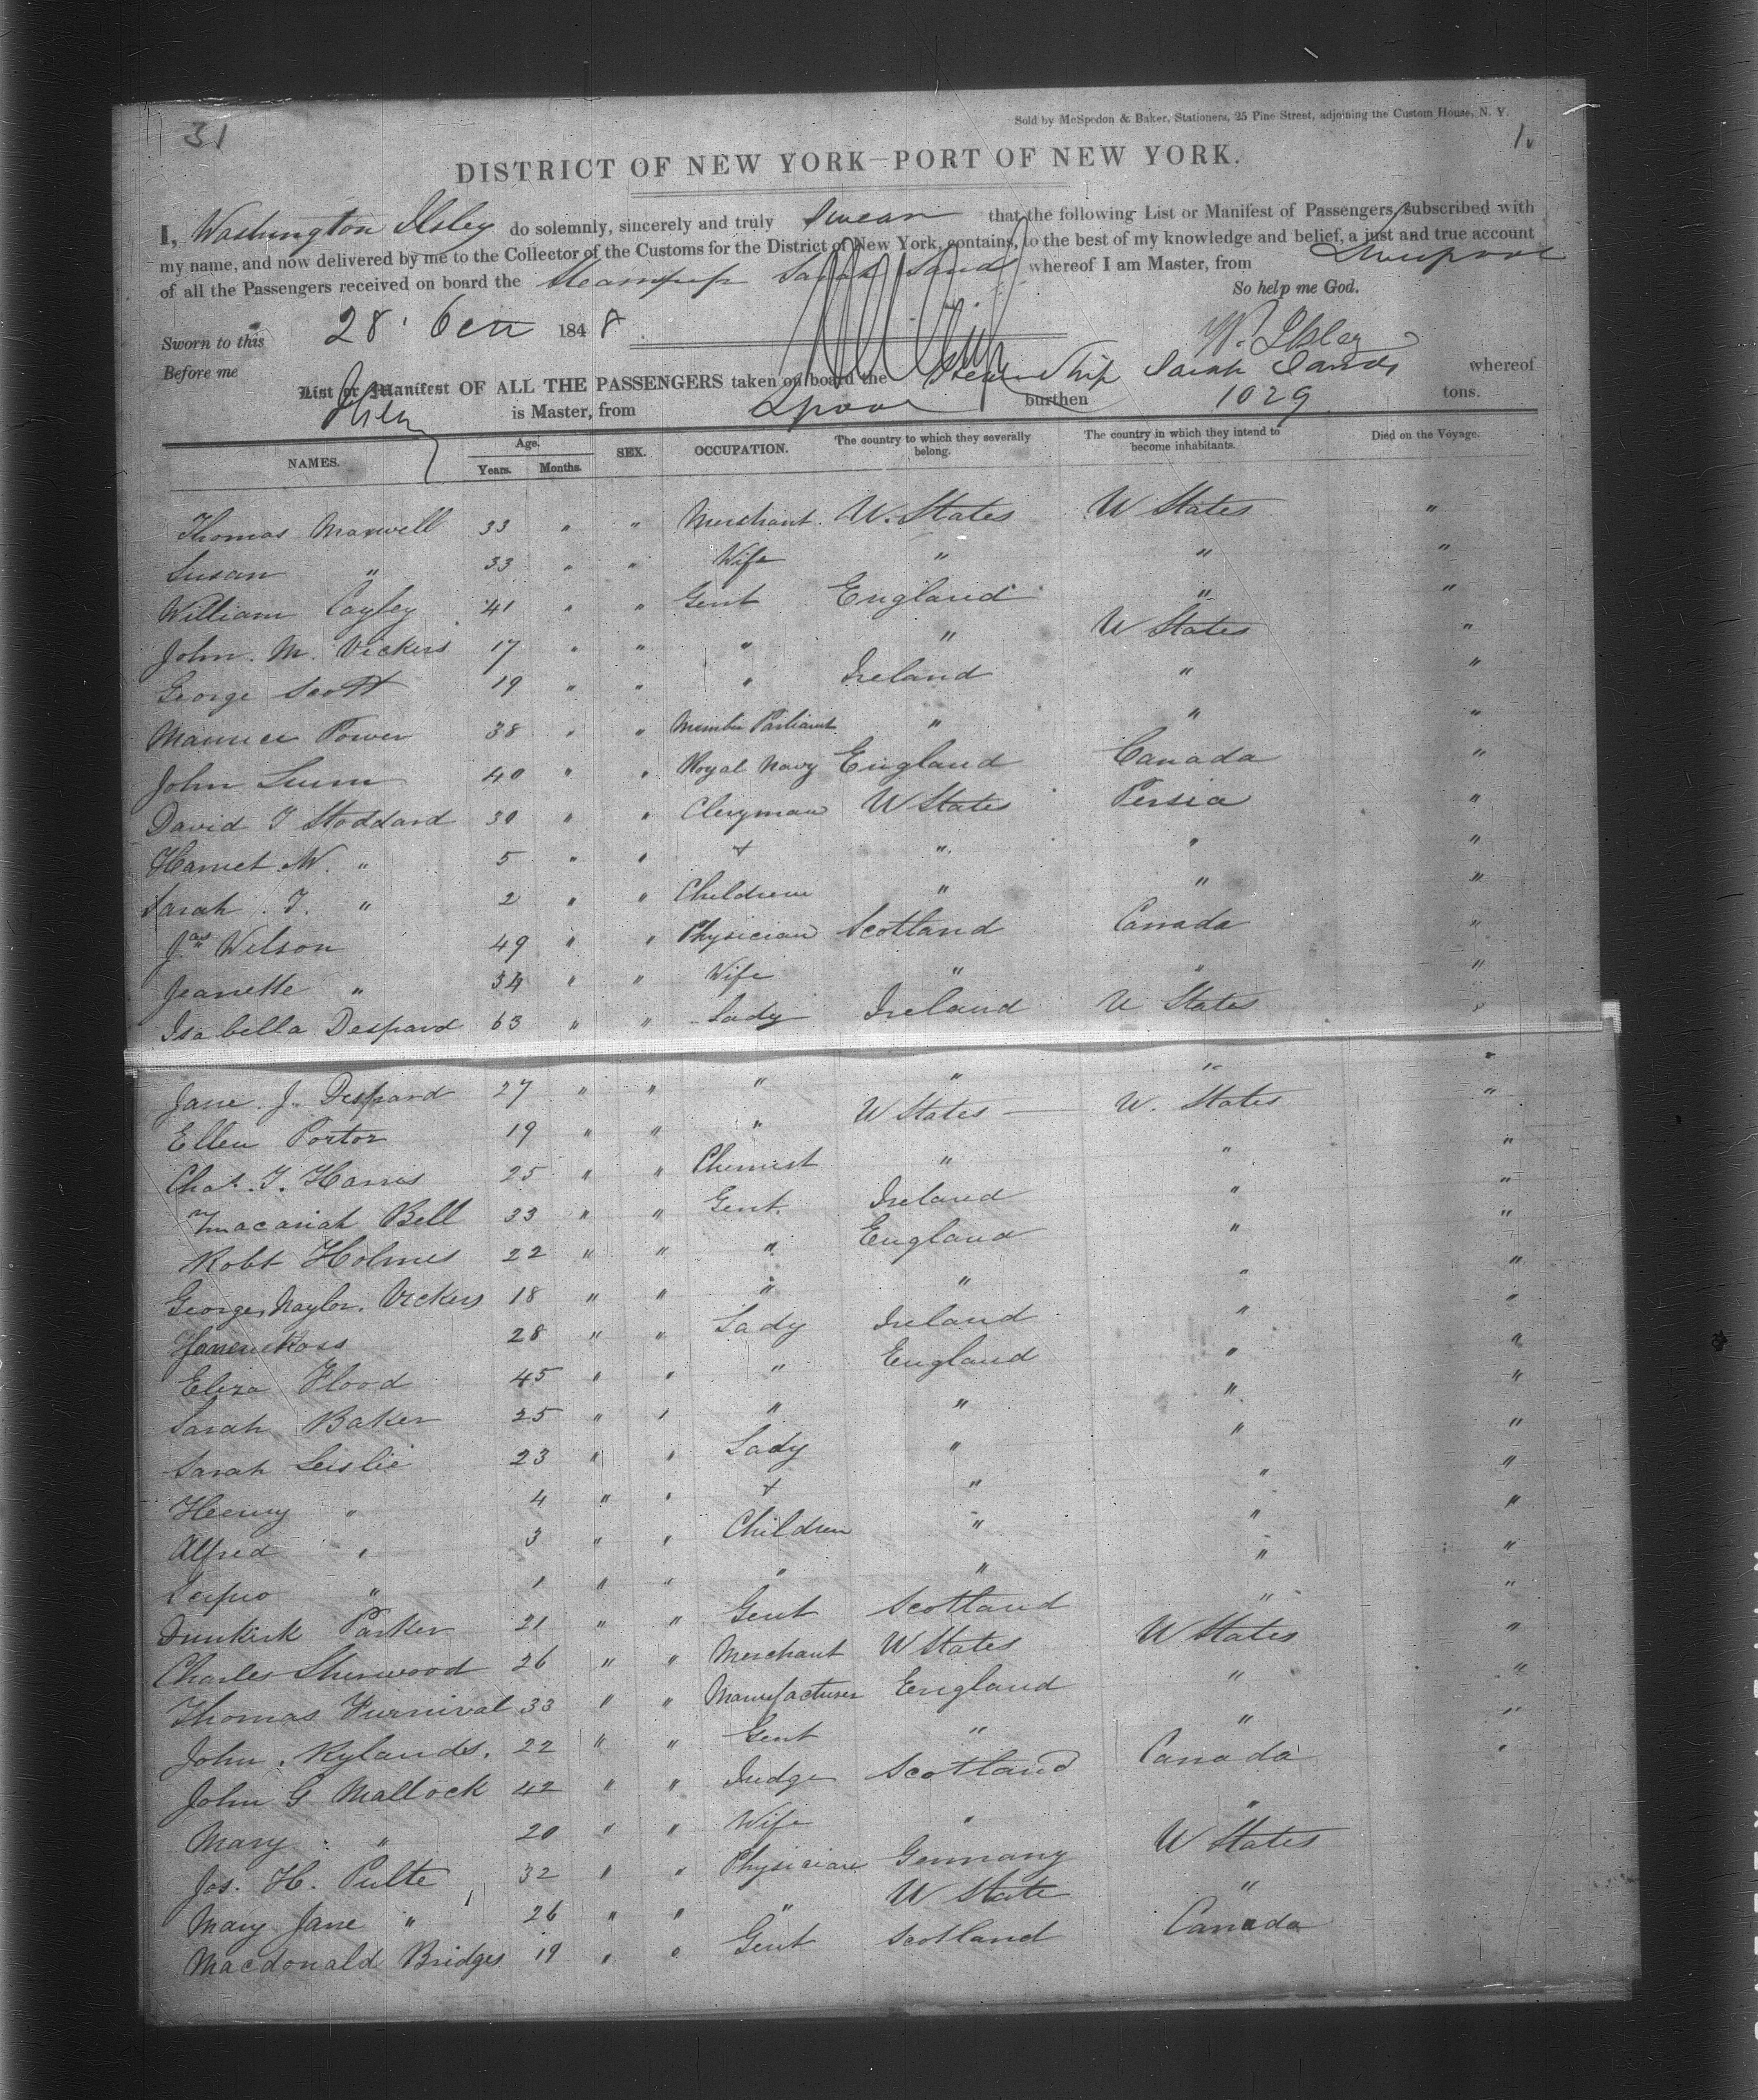 31
Sold by McSpedon & Baker, Stationers, 25 Pine Street, adjoining the Custom House, N. Y.
1
DISTRICT OF NEW YORK—PORT OF NEW YORK.
I, Washington Ilsley do solemnly, sincerely and truly swear that the following List or Manifest of Passengers, subscribed with
my name, and now delivered by me to the Collector of the Customs for the District of New York, contains, to the best of my knowledge and belief, a just and true account
of all the Passengers received on board the Steamship Sarah Sands whereof I am Master, from Liverpool
So help me God.
Sworn to this 28 1848 W. Ilsley
Before me
List or Manifest OF ALL THE PASSENGERS taken on board the Steam Ship Sarah Sands whereof
Ilsley is Master, from Lpool burthen 1029 tons.
NAMES. Age. Years. Months. SEX. OCCUPATION. The country to which they severally belong. The country in which they intend to become inhabitants. Died on the Voyage.
Thomas Maxwell 33 " " Merchant. U. States U States "
Susan " 33 " " Wife " " "
William Cayley 41 " " Gent England " "
John. M. Vickers 17 " " " " U States "
George Scott 19 " " " Ireland " "
Maurice Power 38 " " Member Parliamt. " " "
John 40 " " Royal Navy England Canada "
David T Stoddard 30 " " Clergyman U States Persia "
Harriet W. " 5 " " + " " "
Sarah. T. " 2 " " Children " " "
Jas Wilson 49 " " Physician Scotland Canada "
Jeanette " 34 " " Wife " " "
Isabella Despard 63 " " Lady Ireland U States "
Jane. J. Despard 27 " " " " " "
Ellen Porter 19 " " " U States — U. States "
Chas. T. Harris 25 " " Chemist " " "
Macariah Bell 33 " " Gent. Ireland " "
Robt Holmes 22 " " " England " "
George Naylor. Vickers 18 " " " " " "
Ross 28 " " Lady Ireland " "
Eliza Flood 45 " " " England " "
Sarah Baker 25 " " " " " "
Sarah Leislie 23 " " Lady " " "
Henry " 4 " " + " " "
Alfred " 3 " " Children " " "
" 1 " " " " " "
Dunkirk Parker 21 " " Gent Scotland " "
Charles Sherwood 26 " " Merchant U States U States "
Thomas Furnival 33 " " Manufacturer England " "
John. Rylands. 22 " " Gent " " "
John G Mallock 42 " " Judge Scotland Canada "
Mary " 20 " " Wife " "
Jos. H. Pulte 32 " " Physician Germany U States
Mary Jane " 26 " " " U State "
Macdonald Bridges 19 " " Gent Scotland Canada